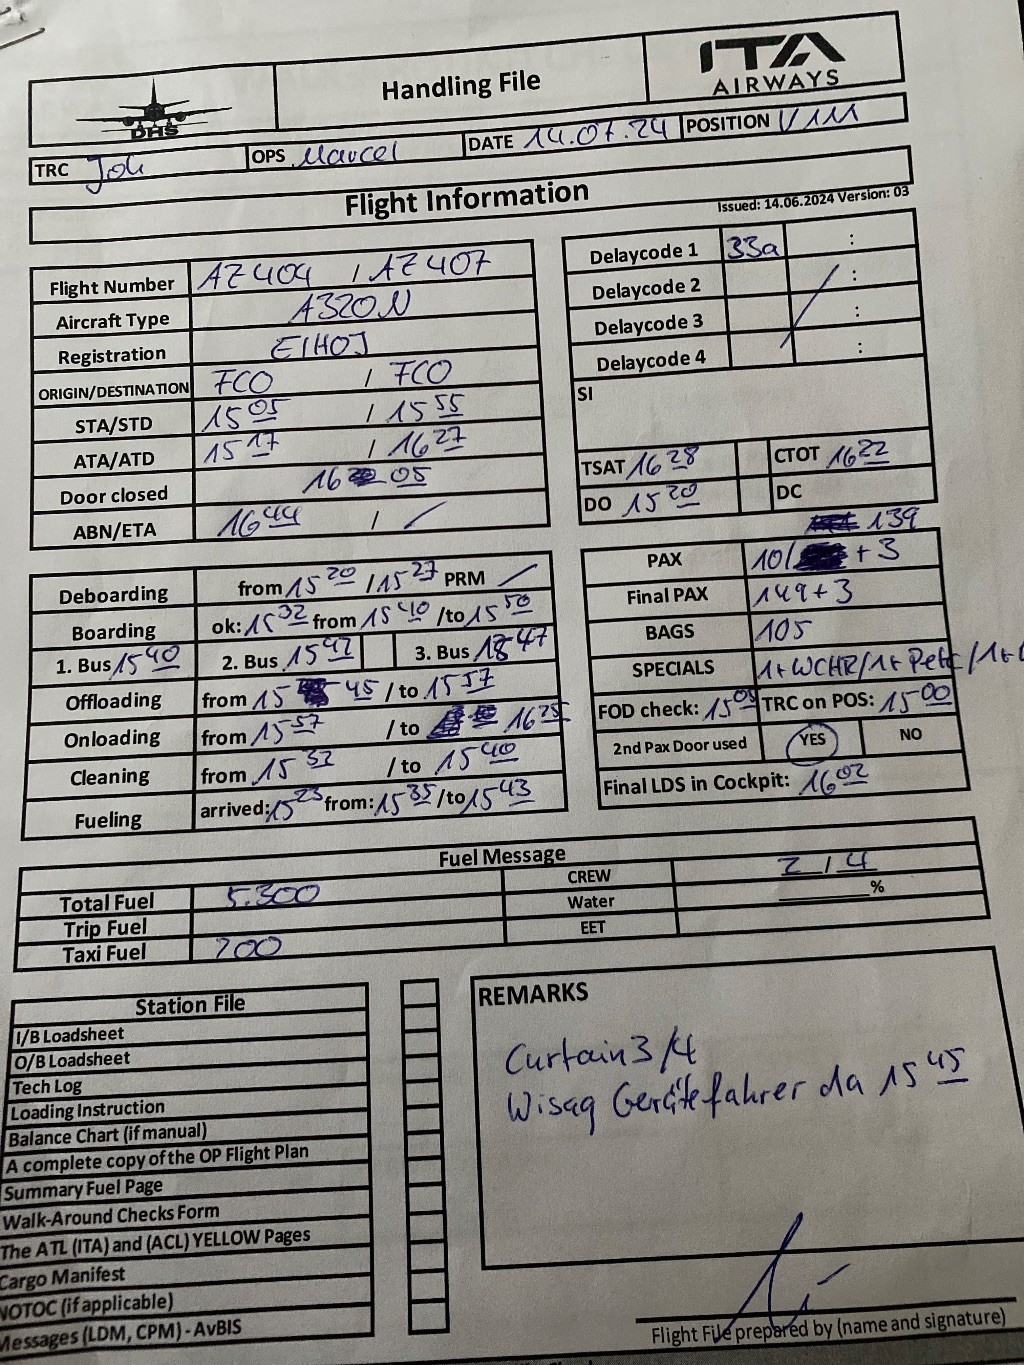 DHS
Handling File
ITA
AIRWAYS
TRC Joh OPS Marcel DATE 14.07.24 POSITION V111
Flight Information
Issued: 14.06.2024 Version: 03
Flight Number AZ404 / AZ407
Aircraft Type A320N
Registration EIHOJ
ORIGIN/DESTINATION FCO / FCO
STA/STD 15 05 / 15 55
ATA/ATD 15 17 / 16 27
Door closed 16 05
ABN/ETA 16 44 /
Delaycode 1 33a :
Delaycode 2 :
Delaycode 3 :
Delaycode 4 :
SI
TSAT 16 28 CTOT 16 22
DO 15 20 DC
Deboarding from 15 20 / 15 27 PRM
Boarding ok: 15 32 from 15 40 /to 15 50
1. Bus 15 40 2. Bus 15 42 3. Bus 47
Offloading from 15 45 / to 15 57
Onloading from 15 57 / to 16 25
Cleaning from 15 32 / to 15 40
Fueling arrived: 15 23 from: 15 35 /to 15 43
139
PAX 10/ + 3
Final PAX 149+3
BAGS 105
SPECIALS 1+WCHR/1+Petc/1+
FOD check: 15 05 TRC on POS: 15 00
2nd Pax Door used YES NO
Final LDS in Cockpit: 16 02
Fuel Message
Total Fuel 5.300 CREW 2 / 4
Trip Fuel Water %
Taxi Fuel 200 EET
Station File
I/B Loadsheet
O/B Loadsheet
Tech Log
Loading Instruction
Balance Chart (if manual)
A complete copy of the OP Flight Plan
Summary Fuel Page
Walk-Around Checks Form
The ATL (ITA) and (ACL) YELLOW Pages
Cargo Manifest
NOTOC (if applicable)
Messages (LDM, CPM) - AvBIS
REMARKS
Curtain 3/4
Wisag Gerätefahrer da 15 45
Flight File prepared by (name and signature)